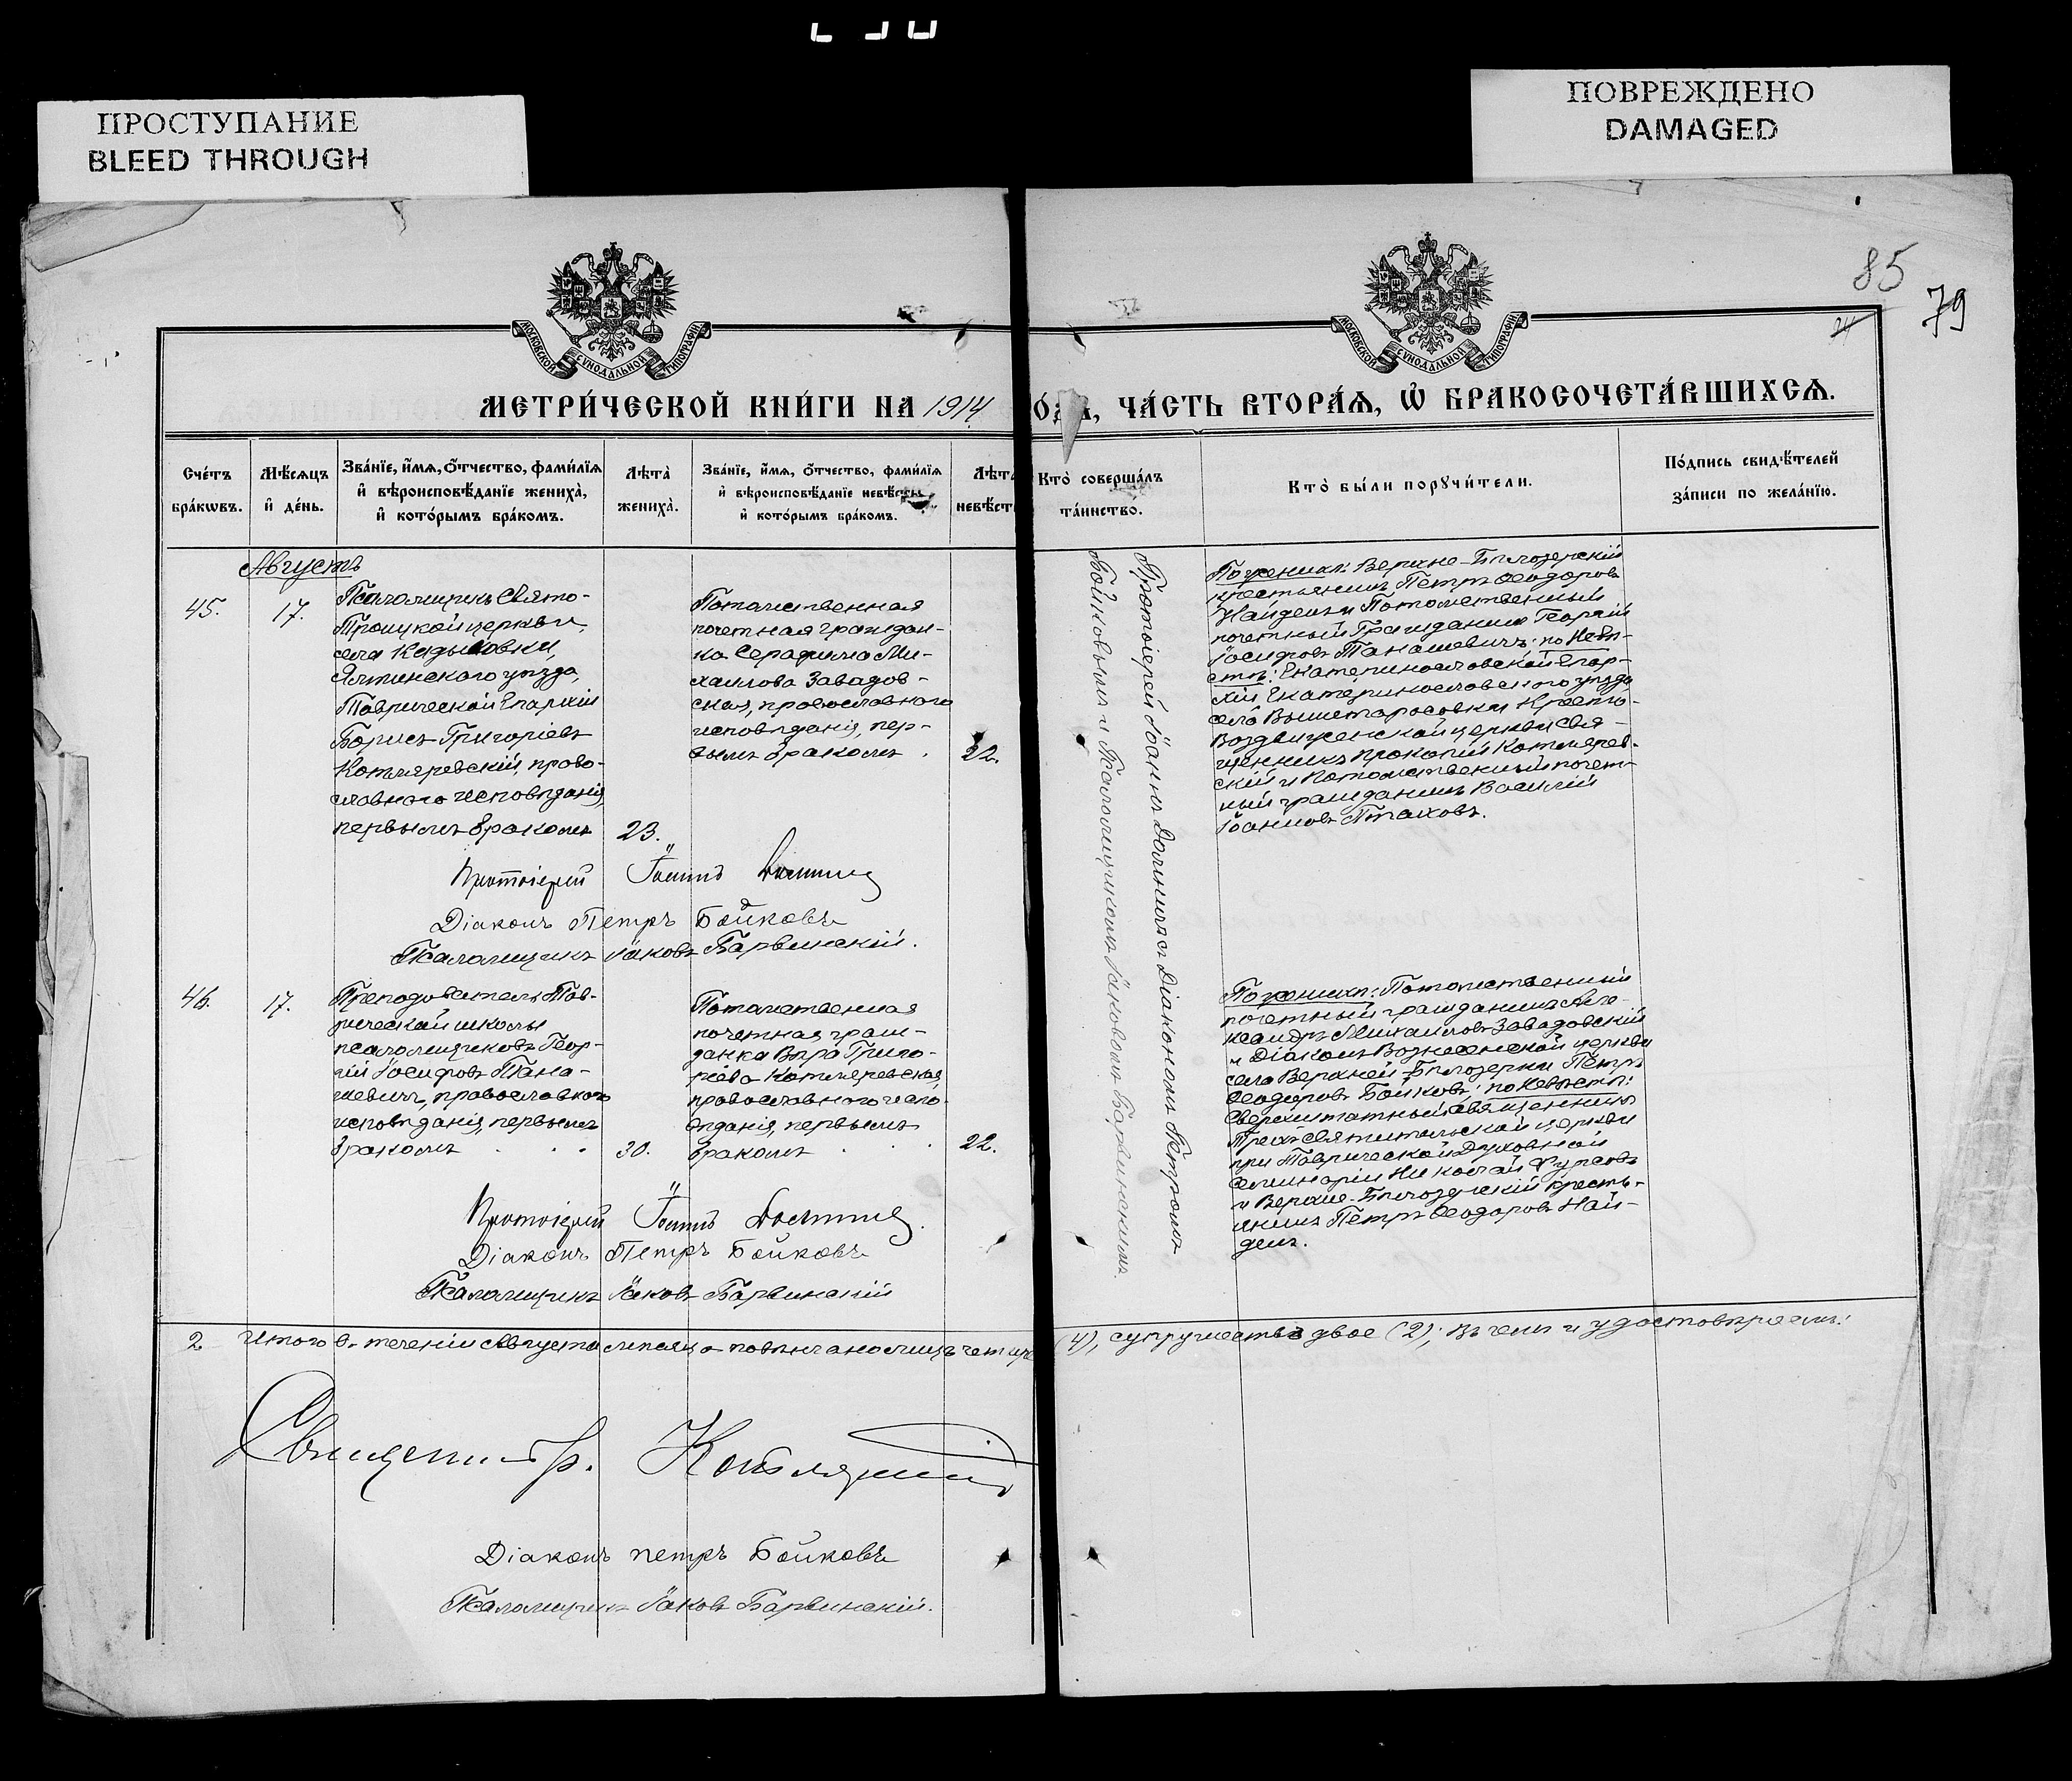 ПРОСТУПАНИЕ
BLEED THROUGH
ПОВРЕЖДЕНО
DAMAGED
85
79
24
МОСКОВСКОЙ СѴНОДАЛЬНОЙ ТИПОГРАФІИ
МОСКОВСКОЙ СѴНОДАЛЬНОЙ ТИПОГРАФІИ
МЕТРИ́ЧЕСКОЙ КНИ́ГИ НА 1914
ЧА́СТЬ ВТОРА́Ѧ, Ѽ БРАКОСОЧЕТА́ВШИХСѦ.
Сче́тъ
бра́кѡвъ.
Мѣ́сѧцъ
и҆ де́нь.
Зва́нїе, и҆́мѧ, ѻ҆́тчество, фами́лїѧ
и҆ вѣроисповѣ́данїе жениха̀,
и҆ кото́рымъ бра́комъ.
Лѣта̀
жениха̀.
Зва́нїе, и҆́мѧ, ѻ҆́тчество, фами́лїѧ
и҆ вѣроисповѣ́данїе невѣ́сты
и҆ кото́рымъ бра́комъ.
Лѣта
невѣст
Кто̀ соверша́лъ
та́инство.
Кто̀ бы́ли порꙋчи́тели.
По́дпись свидѣ́телей
за́писи по жела́нїю.
Августъ
45.
17.
Псаломщикъ Свято-
Троицкой церкви,
села Кадыковки,
Ялтинскаго уѣзда,
Таврической Епархіи
Борисъ Григоріевъ
Котляревскій, право-
славнаго исповѣданія,
первымъ бракомъ
23.
Потомственная
почетная граждан-
ка Серафима Ми-
хаилова Завадов-
ская, православнаго
исповѣданія, пер-
вымъ бракомъ.
22.
Протоіерей Іоаннъ Долининъ съ Діакономъ Петромъ
Бойковымъ и Псаломщикомъ Іаковомъ Барвинскимъ.
По женихѣ: Верхне-Бѣлозерскій
крестьянинъ Петръ Ѳеодоровъ
Найденъ и Потомственный
почетный Гражданинъ Георгій
Іосифовъ Танашевичъ; по невѣ-
стѣ: Екатеринославской Епар-
хіи, Екатеринославскаго уѣзда
села Вышетарасовки Кресто-
воздвиженской церкви Свя-
щенникъ Прокопій Котлярев-
скій и Потомственный почет-
ный гражданинъ Василій
Іоанновъ Птаховъ.
Протоіерей Іоаннъ
Діаконъ Петръ Бойковъ
Псаломщикъ Іаковъ Барвинскій.
46.
17.
Преподаватель Тав-
рической школы
псаломщиковъ Геор-
гій Іосифовъ Тана-
шевичъ, православнаго
исповѣданія, первымъ
бракомъ . . .
30.
Потомственная
почетная граж-
данка Вѣра Григо-
ріева Котляревская,
православнаго испо-
вѣданія, первымъ
бракомъ . . .
22.
По женихѣ: Потомственный
почетный гражданинъ Але-
ксандръ Михаиловъ Завадовскій
и Діаконъ Вознесенской церкви
села Верхней Бѣлозерки Петръ
Ѳеодоровъ Бойковъ; по невѣстѣ:
Сверхштатный Священникъ
Трехъ-Святительской церкви
при Таврической Духовной
Семинаріи Николай
и Верхне-Бѣлозерскій кресть-
янинъ Петръ Ѳеодоровъ Най-
денъ.
Протоіерей Іоаннъ
Діаконъ Петръ Бойковъ
Псаломщикъ Іаковъ Барвинскій
2 Итого въ теченіи Августа мѣсяца повѣнчано лицъ четыре (4), супружествъ двое (2); въ чемъ и удостовѣряемъ:
Діаконъ Петръ Бойковъ
Псаломщикъ Іаковъ Барвинскій.